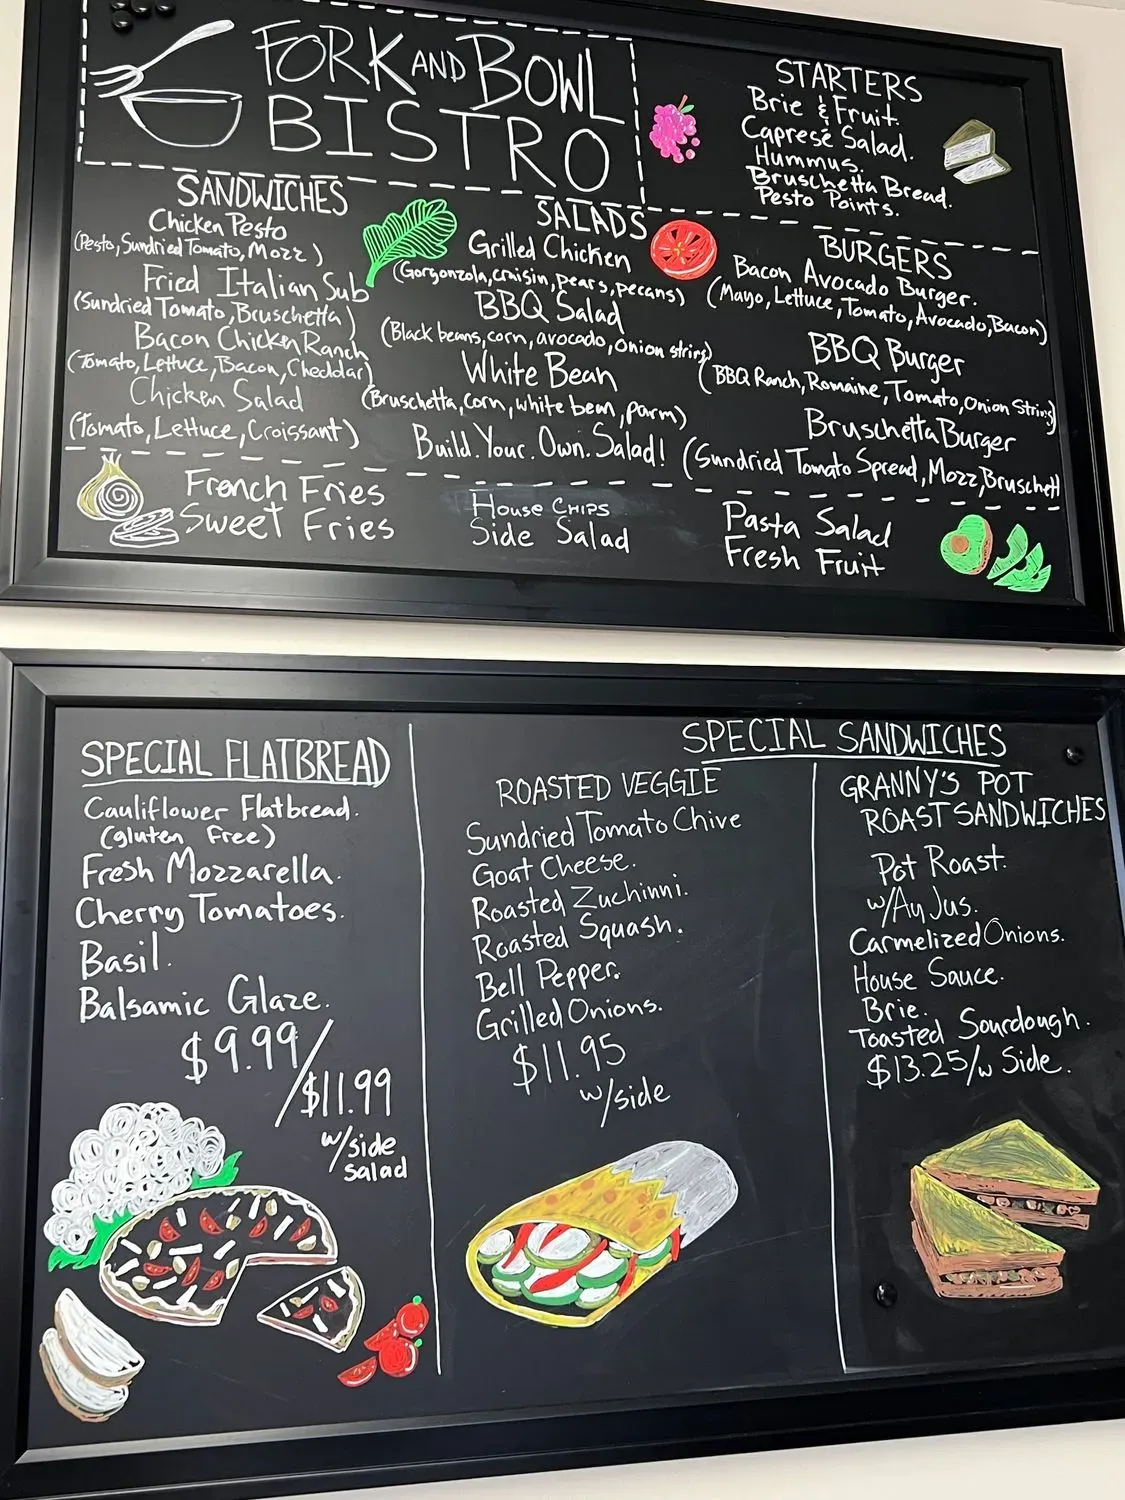 FORK AND BOWL
BISTRO
STARTERS
Brie & Fruit.
Capresé Salad.
Hummus.
Bruschetta Bread.
Pesto Points.
SANDWICHES
Chicken Pesto
(Pesto, Sundried Tomato, Mozz)
Fried Italian Sub
(Sundried Tomato, Bruschetta)
Bacon Chicken Ranch
(Tomato, Lettuce, Bacon, Cheddar)
Chicken Salad
(Tomato, Lettuce, Croissant)
SALADS
Grilled Chicken
(Gorgonzola, craisin, pears, pecans)
BBQ Salad
(Black beans, corn, avocado, onion string)
White Bean
(Bruschetta, corn, white bean, parm)
Build. Your. Own. Salad!
BURGERS
Bacon Avocado Burger.
(Mayo, Lettuce, Tomato, Avocado, Bacon)
BBQ Burger
(BBQ Ranch, Romaine, Tomato, Onion String)
Bruschetta Burger
(Sundried Tomato Spread, Mozz, Bruschett
French Fries
Sweet Fries
House Chips
Side Salad
Pasta Salad
Fresh Fruit
SPECIAL FLATBREAD
Cauliflower Flatbread.
(gluten free)
Fresh Mozzarella.
Cherry Tomatoes.
Basil.
Balsamic Glaze.
$9.99/
$11.99
w/side
salad
SPECIAL SANDWICHES
ROASTED VEGGIE
Sundried Tomato Chive
Goat Cheese.
Roasted Zuchinni.
Roasted Squash.
Bell Pepper.
Grilled Onions.
$11.95
w/side
GRANNY'S POT
ROAST SANDWICHES
Pot Roast.
w/Au Jus.
Carmelized Onions.
House Sauce.
Brie.
Toasted Sourdough.
$13.25/w Side.